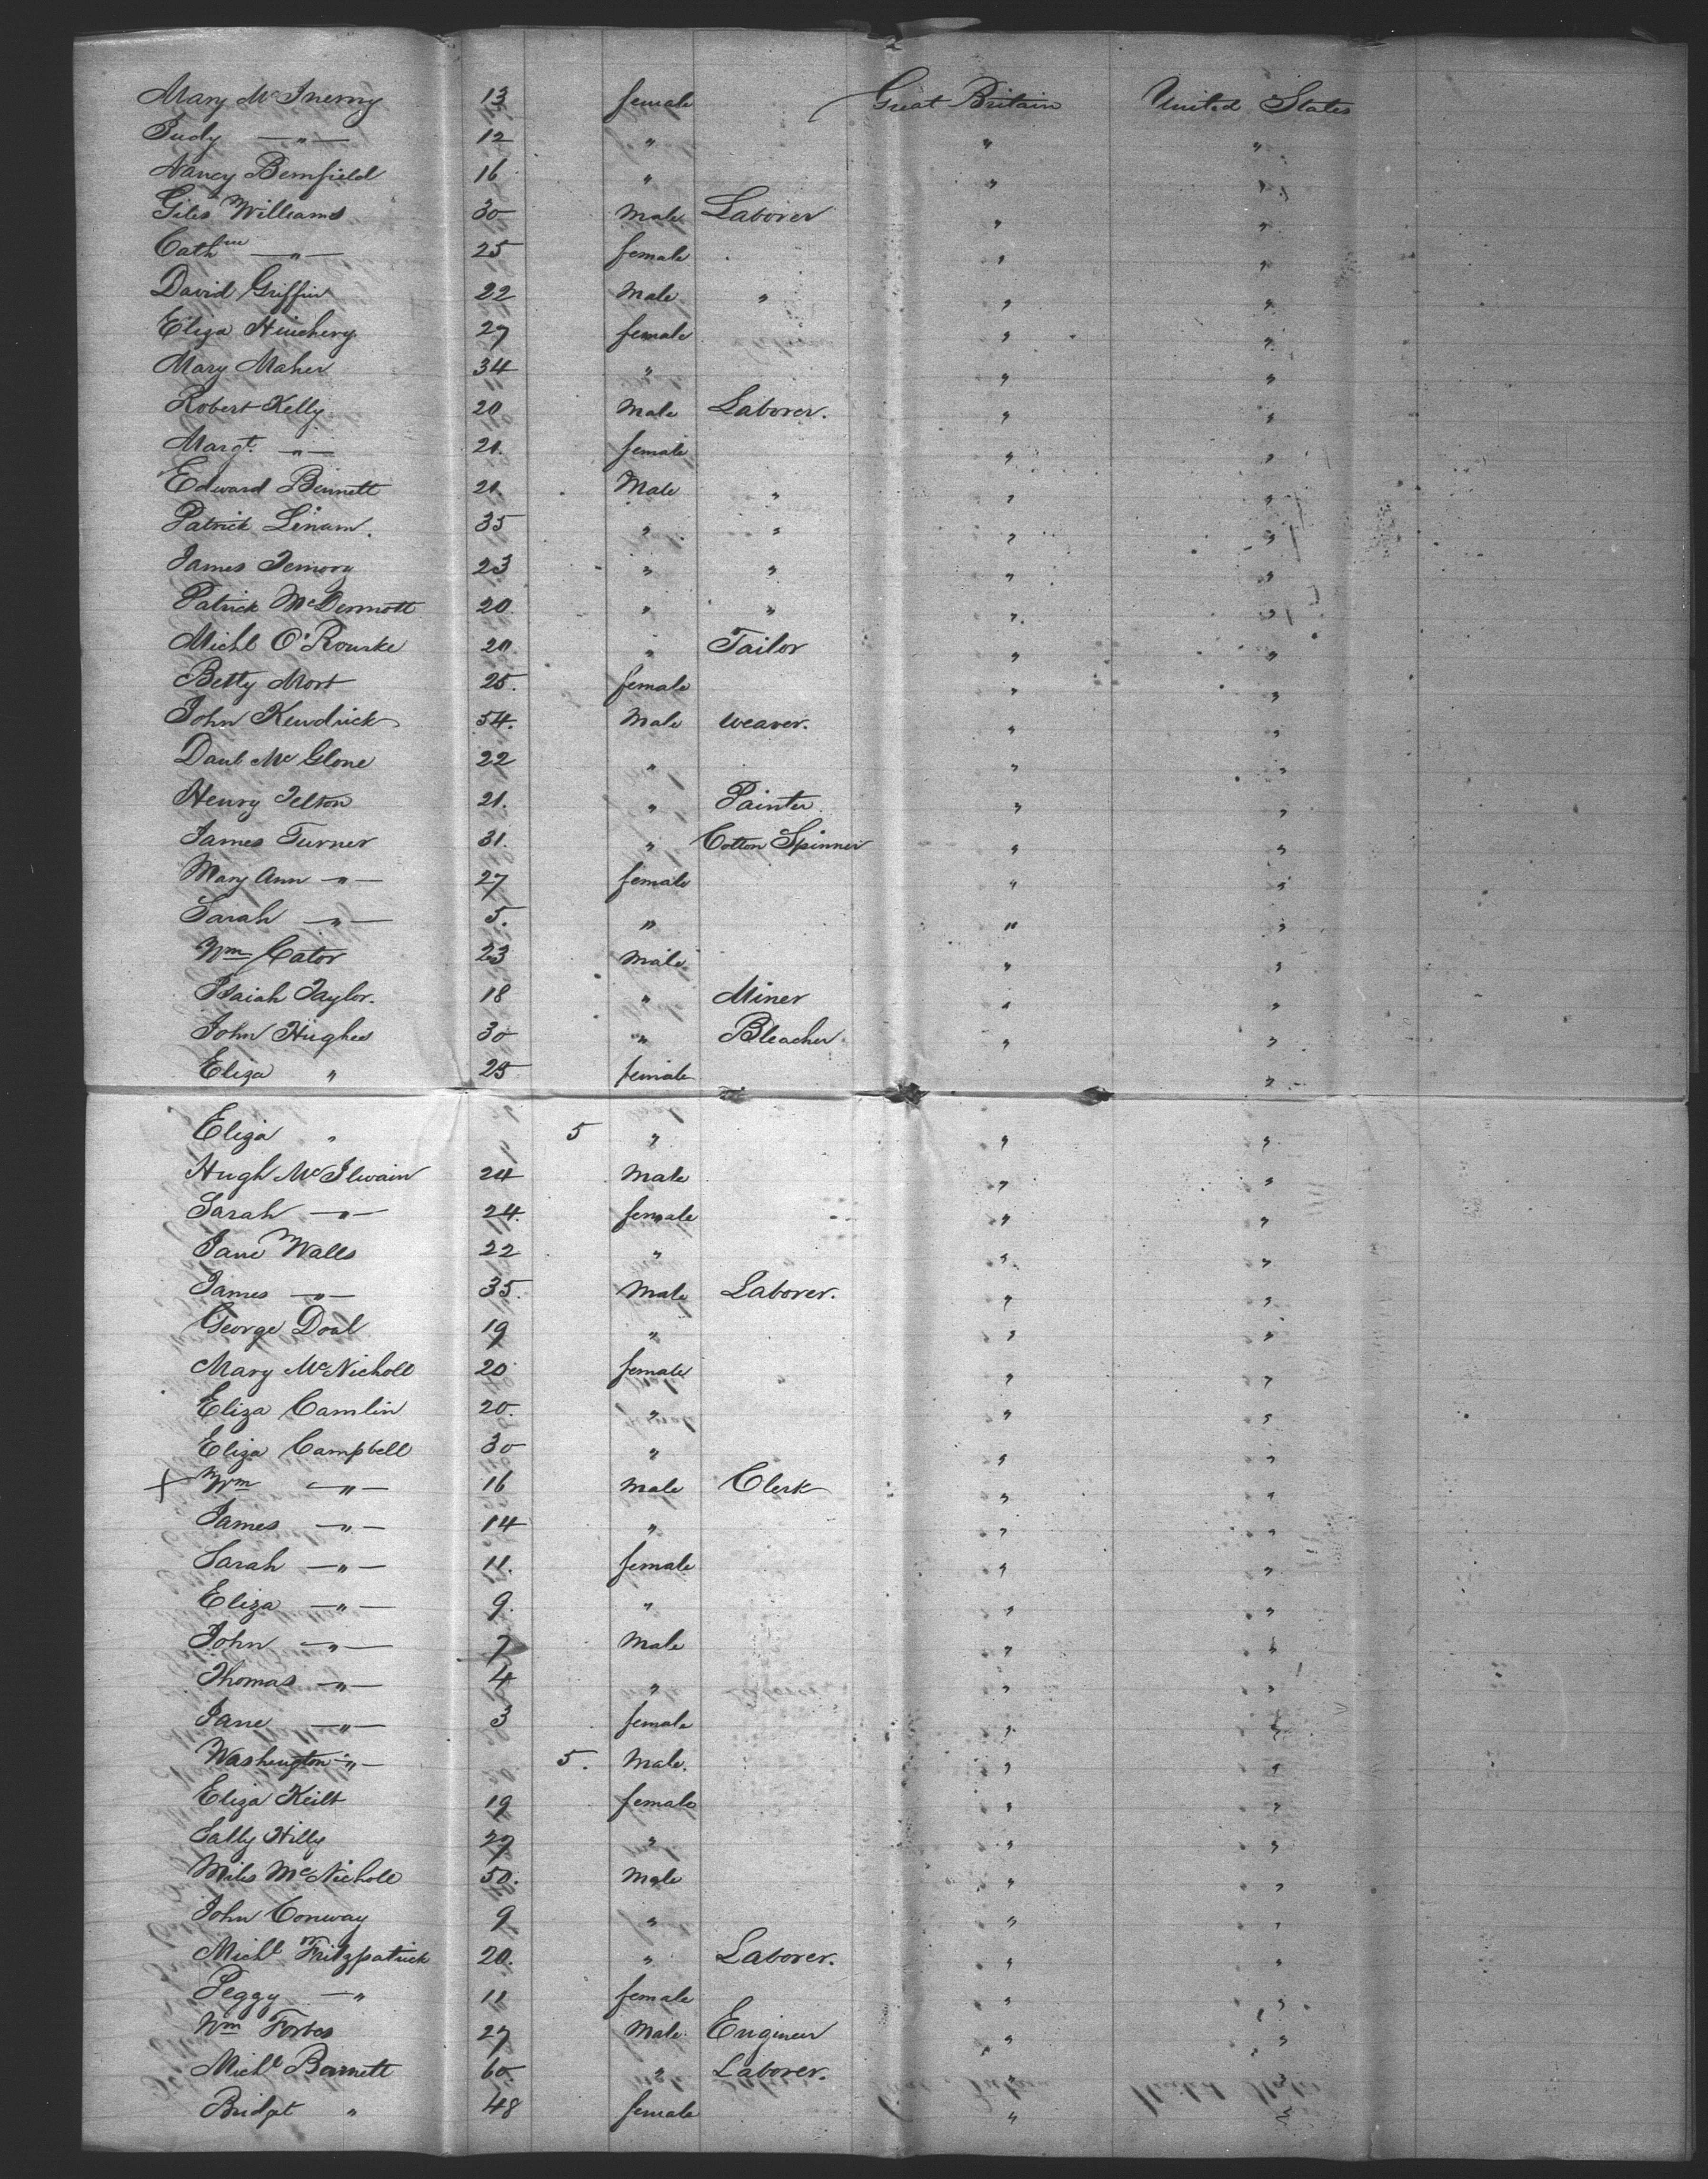 Mary McInerny 13 female Great Britain United States
Judy —"— 12 " " "
Nancy Bemfield 16 " " "
Giles Williams 30 Male Laborer " "
Cathne —"— 25 female " "
David Griffin 22 Male " " "
Eliza Hinchery 27 female " "
Mary Maher 34 " " "
Robert Kelly 20 Male Laborer. " "
Margt. —"— 20. female " "
Edward Bennett 21. Male " " "
Patrick Linam. 35 " " " "
James Temory 23 " " " "
Patrick McDermott 20 " " " "
Michl O'Rourke 20. " Tailor " "
Betty Mort 25. female " "
John Kendrick 54. Male weaver. " "
Danl McGlone 22 " " "
Henry Telton 21. " Painter " "
James Turner 31. " Cotton Spinner " "
Mary Ann —"— 27 female " "
Sarah —"— 5. " " "
Wm Cator 23 Male " "
Isaiah Taylor. 18 " Miner " "
John Hughes 30 " Bleacher " "
Eliza " 25 female "
Eliza " 5 " " "
Hugh McIlwain 24 Male " "
Sarah —"— 24. female " "
Jane Walls 22 " " "
James —"— 35. Male Laborer. " "
George Doal 19 " " "
Mary McNicholl 20 female " "
Eliza Camlin 20. " " "
Eliza Campbell 30 " " "
X Wm —"— 16 Male Clerk " "
James —"— 14 " " "
Sarah —"— 11. female " "
Eliza —"— 9. " " "
John —"— 7 Male " "
Thomas —"— 4 " " "
Jane —"— 3 female " "
Washington —"— 5. Male. " "
Eliza Keilt 19 female " "
Sally Hilly 27 " " "
Miles McNicholl 50. Male " "
John Conway 9 " " "
Michl Fritzpatrick 20. " Laborer. " "
Peggy —" 11 female " "
Wm Forbes 27 Male Engineer " "
Michl Barnett 60. " Laborer. " "
Bridget " 48 female " "